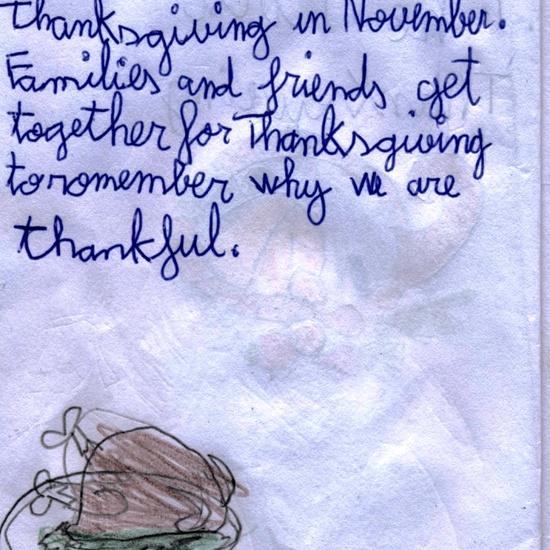 Thanksgiving in November.
Families and friends get
together for Thanksgiving
to romember why we are
thankful.